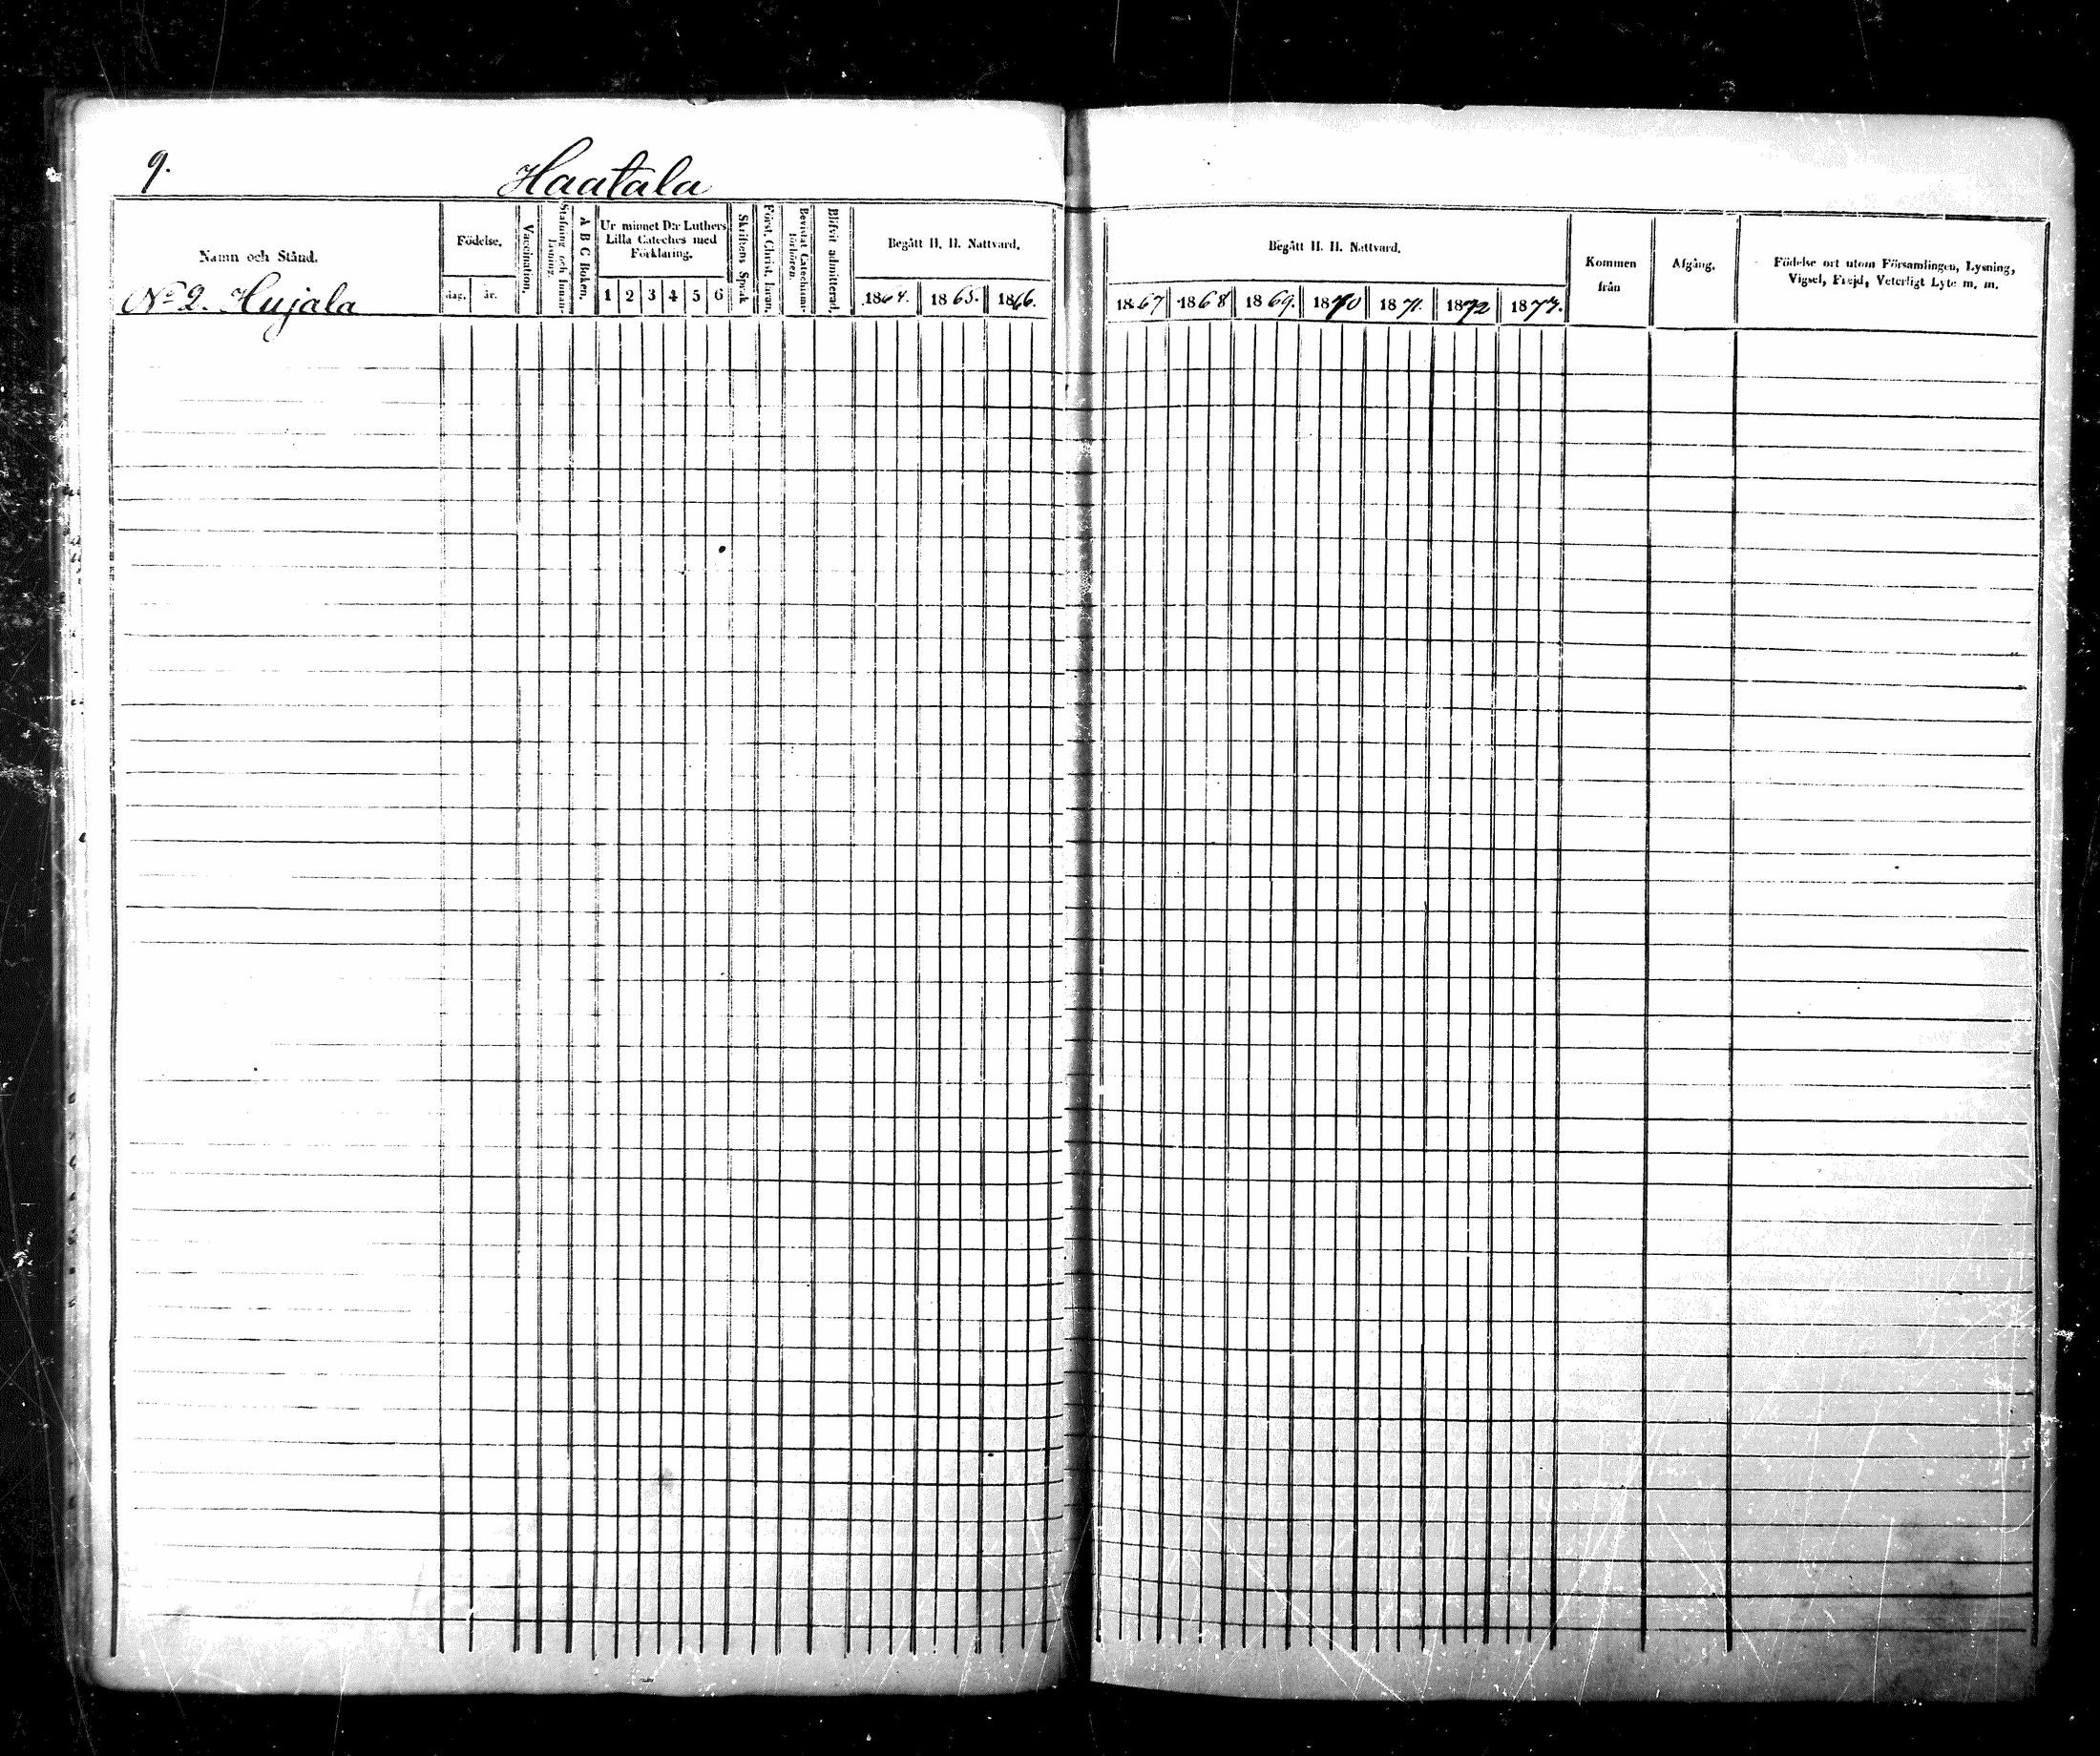 9.
Haatala
Namn och Stånd.
No 2. Hujala
Födelse.
dag. år.
Vaccination.
Stafning och Innan-
läsning.
A B C Boken.
Ur minnet D:r Luthers
Lilla Cateches med
Förklaring.
1 2 3 4 5 6
Skriftens Språk
Först. Christ. Läran.
Bevistat Catechismi-
förhören.
Blifvit admitterad.
Begått H. H. Nattvard.
1864. 1865. 1866.
Begått H. H. Nattvard.
1867 1868 1869. 1870 1871. 1872 1873.
Kommen
från
Afgång.
Födelse ort utom Församlingen, Lysning,
Vigsel, Frejd, Veterligt Lyte m. m.